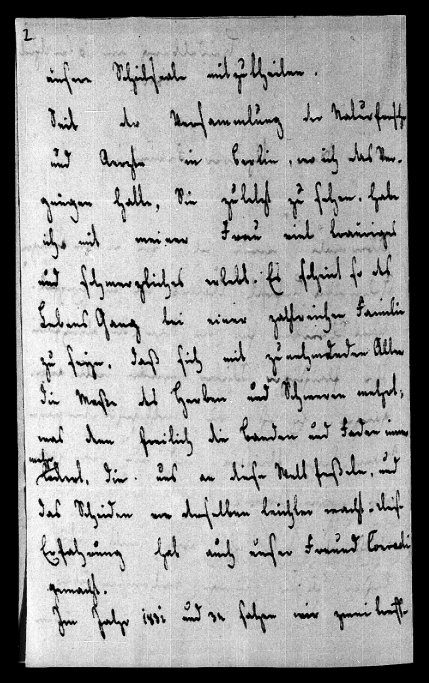 2
unsere Schicksale mitzutheilen.
Seit der Versammlung der Naturforscher
und Aerzte in Berlin, wo ich das Ver-
gnügen hatte, Sie zuletzt zu sehen, habe
ich mit meiner Frau viel trauriges
und schmerzliches erlebt. Es scheint so des
Lebens Gang bei einer zahlreichen Familie
zu seyn, daß sich mit zunehmenden Alter
die Masse des Herben und Schweren mehrt,
was denn freilich die Banden und Faden immer
mehr die uns an diese Welt fesseln, und
das Scheiden von derselben leichter macht. diese
Erfahrung hat auch unser Freund
gemacht.
Im Jahr 1831 und 32 sahen wir zwei